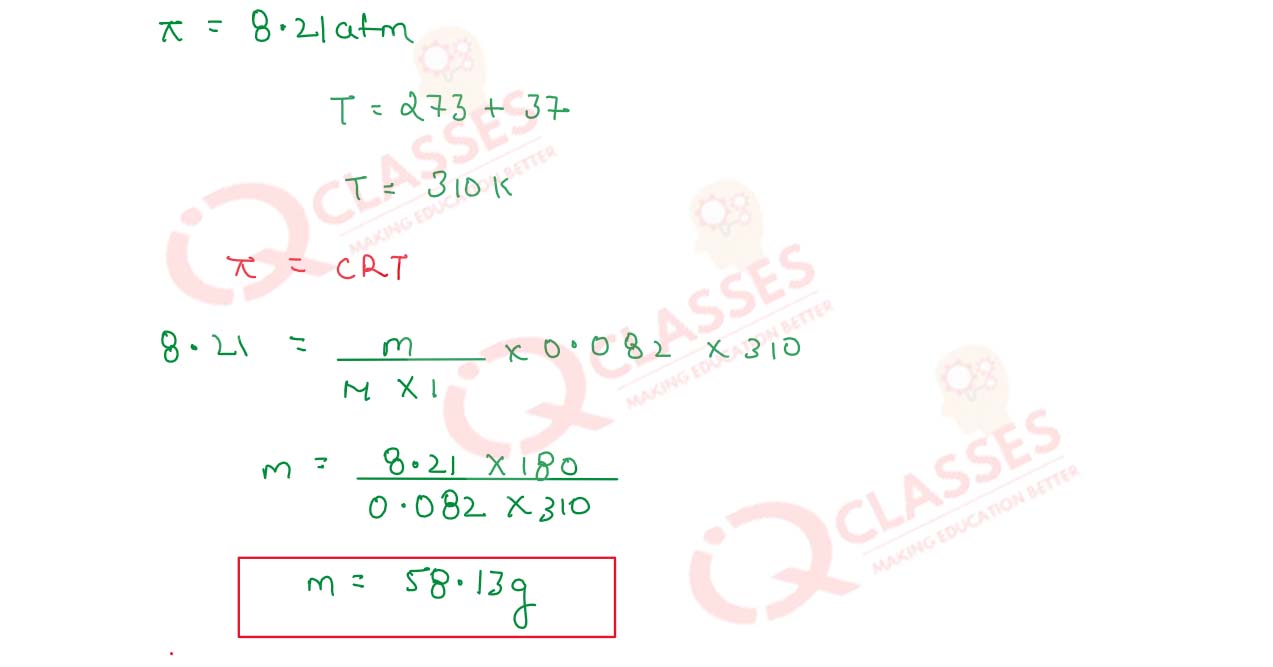 π = 8.21 atm
T = 273 + 37
T = 310 K
π = CRT
8.21 = m / M × 1 × 0.082 × 310
m = 8.21 × 180 / 0.082 × 310
m = 58.13g
iQ CLASSES
MAKING EDUCATION BETTER
iQ CLASSES
MAKING EDUCATION BETTER
iQ CLASSES
MAKING EDUCATION BETTER